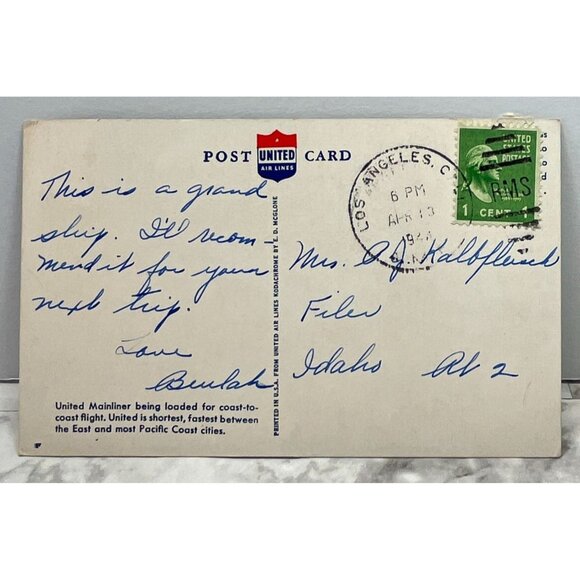 POST UNITED AIR LINES CARD
This is a grand
ship. I'll recom-
mend it for your
next trip.
Love
Beulah
United Mainliner being loaded for coast-to-
coast flight. United is shortest, fastest between
the East and most Pacific Coast cities.
PRINTED IN U.S.A. FROM UNITED AIR LINES KODACHROME BY E. D. MCGLONE
LOS ANGELES, C
6 PM
APR 13
RMS
UNITED
STATES
POSTAGE
1 CENT 1
Mrs. A J Kalbfleisch
Filer
Idaho Rt 2